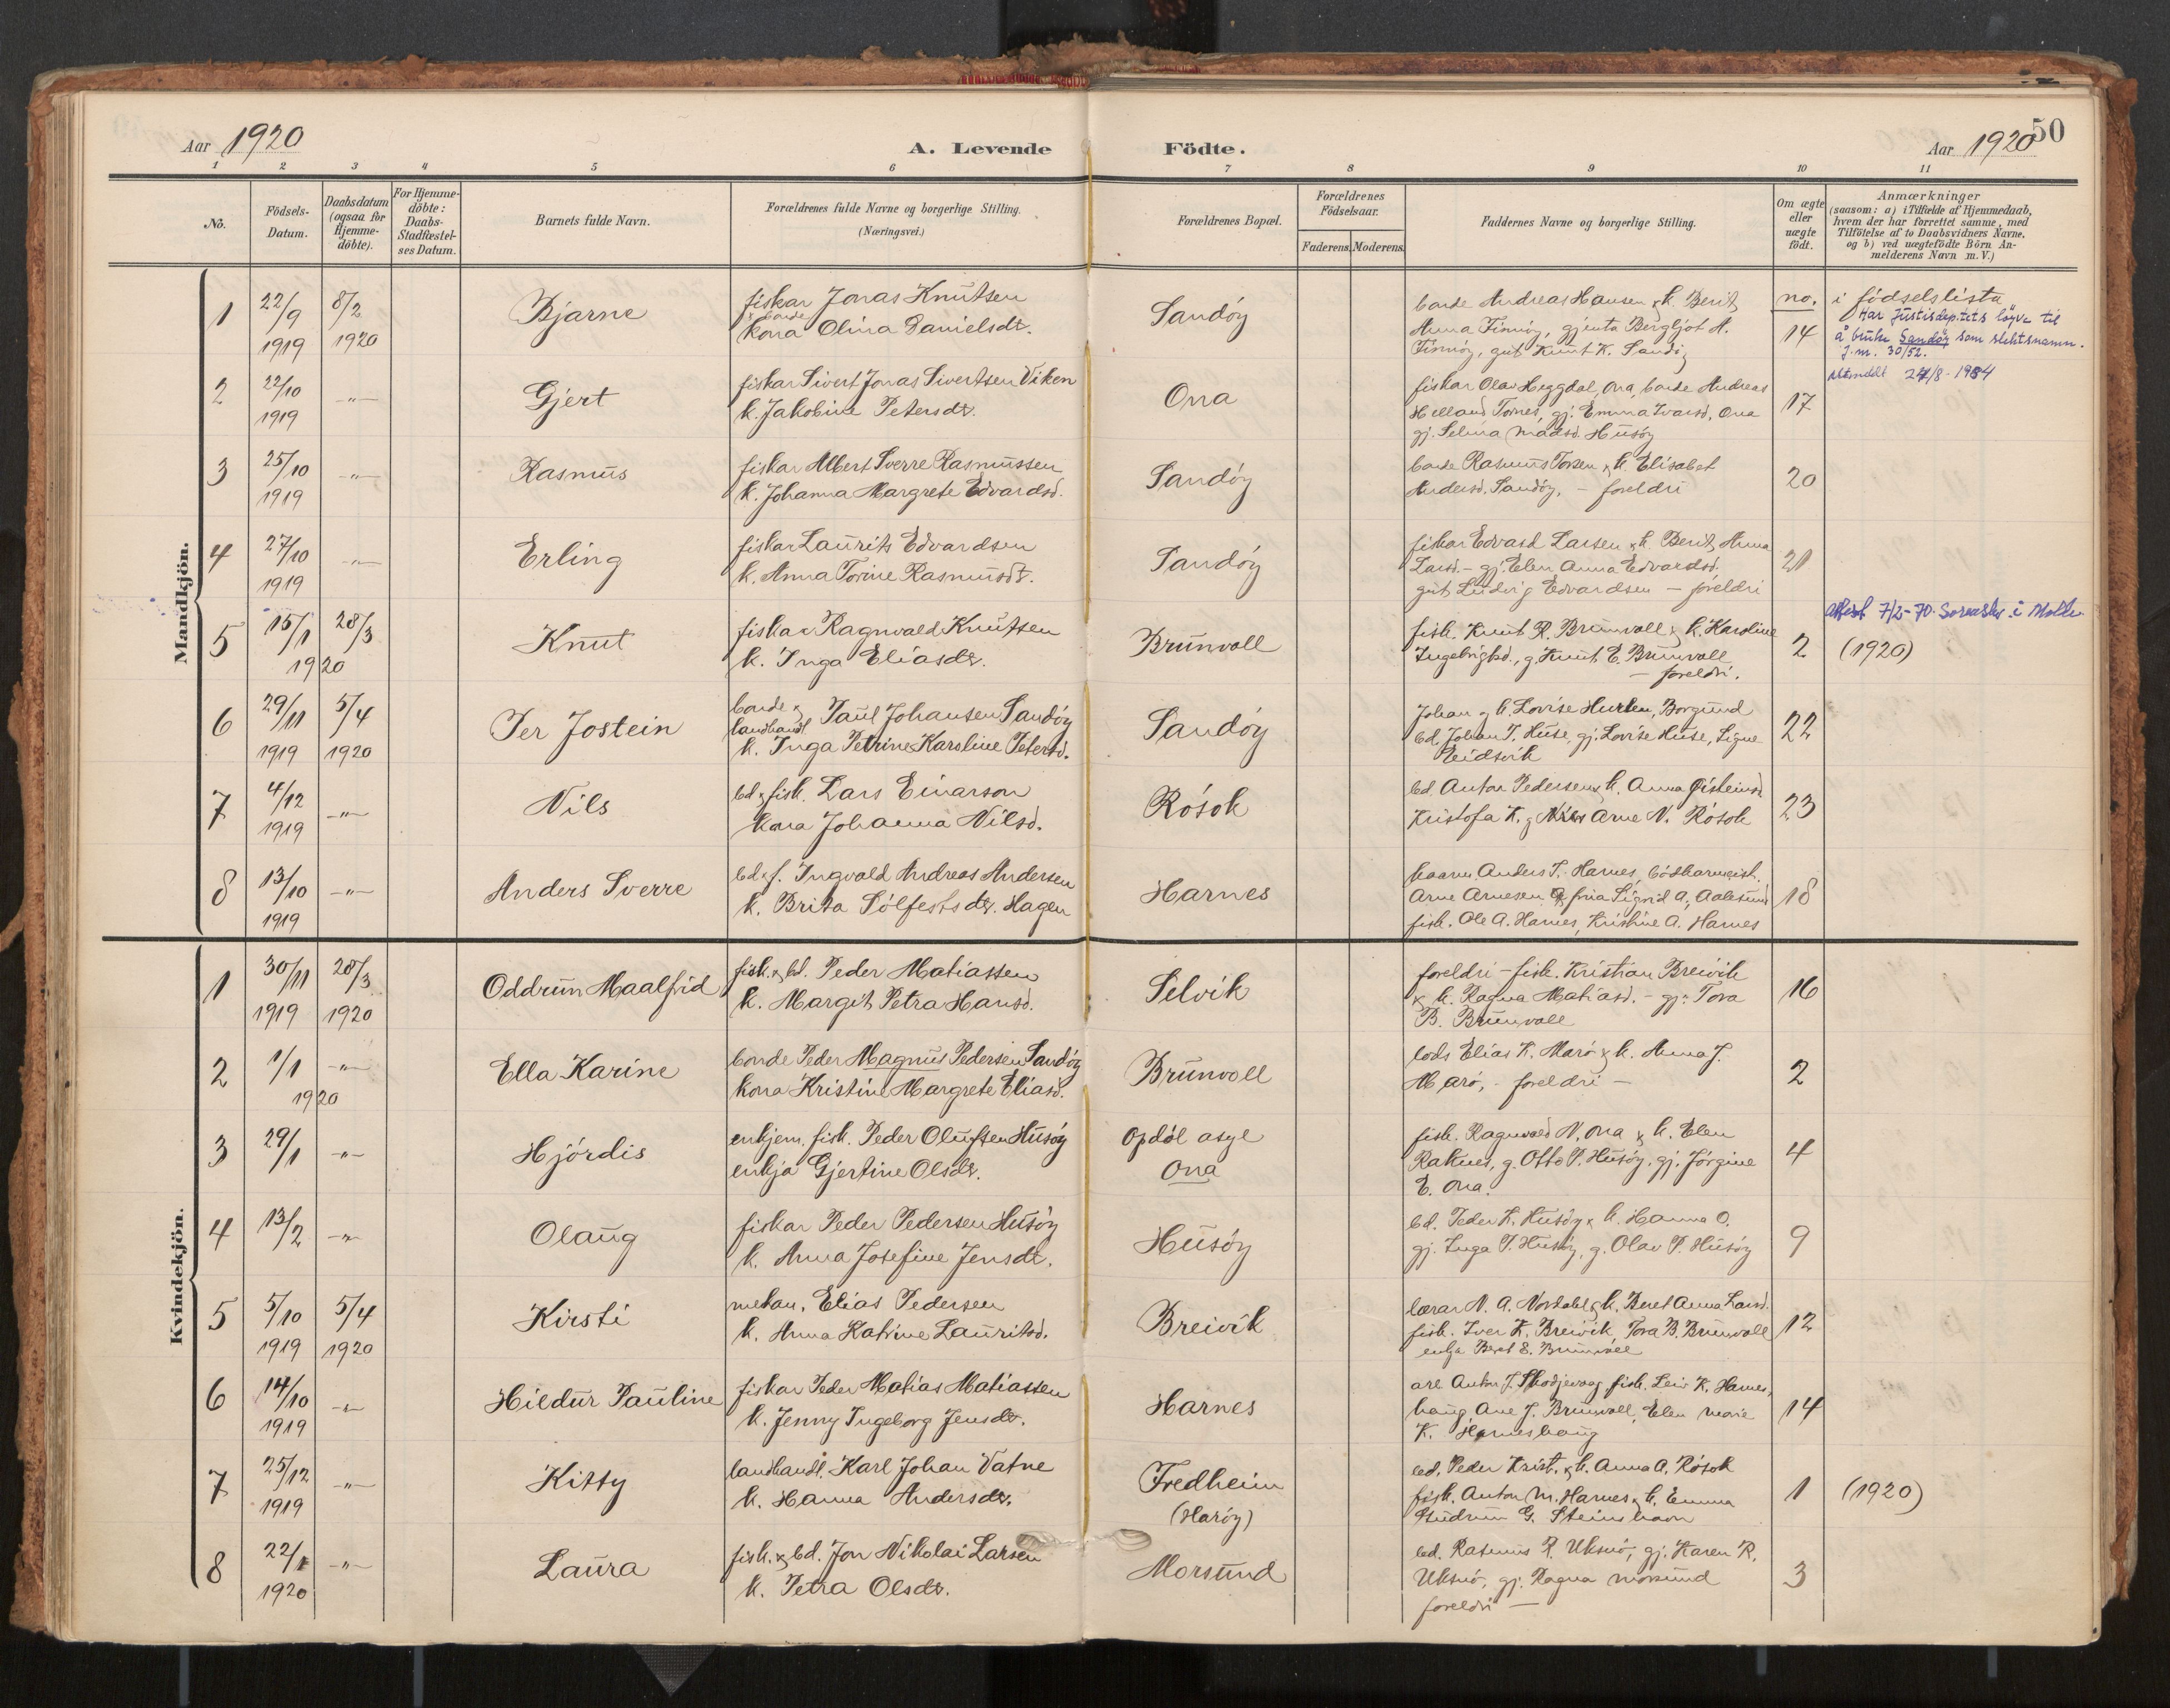 Aar 1920
A. Levende Födte.
Aar 1920
50
1 2 3 4 5 6 7 8 9 10 11
No.
Födsels-Datum.
Daabsdatum (ogsaa for Hjemme-döbte).
For Hjemme-döbte: Daabs-Stadfæstel-ses Datum.
Barnets fulde Navn.
Forældrenes fulde Navne og borgerlige Stilling.
(Næringsvei.)
Forældrenes Bopæl.
Forældrenes Födselsaar.
Faderens. Moderens.
Faddernes Navne og borgerlige Stilling.
Om ægte eller uægte födt.
Anmærkninger
(saasom: a) i Tilfælde af Hjemmedaab,
hvem der har forrettet samme, med
Tilföielse af to Daabsvidners Navne,
og b) ved uægtefödte Börn An-
melderens Navn m. V.)
Mandkjön.
1 22/9 1919 8/2 1920 Bjarne
fiskar Jonas Knutsen
& bonde
kona Olina Danielsdr.
Sandöy
bonde Andreas Hansen & k. Berit
Anna Finnöy, gjenta Bergljot A.
Finnöy, gut Knut K. Sandöy
no. 14
i födselslista
Har Justisdep.tets löyve til
å bruke Sandöy som slektsnamn.
J.nr. 30/52.
27/8-1954
2 22/10 1919 -"- Gjert
fiskar Sivert Jonas Sivertsen Viken
k. Jakobine Petersdr.
Ona
fiskar Olav Heggdal, Ona, bonde Andreas
Helland Tornes, gj. Emma Ivarsd. Ona
gj. Selma Madsd. Husöy
17
3 25/10 1919 -"- Rasmus
fiskar Albert Sverre Rasmussen
k. Johanna Margrete Edvardsd.
Sandöy
bonde Rasmus Torsen & k. Elisabet
Andersd. Sandöy, - foreldri
20
4 27/10 1919 -"- Erling
fiskar Laurits Edvardsen
k. Anna Torine Rasmusdr.
Sandöy
fiskar Edvard Larsen & k. Berit Anna
Larsd. - gj. Elen Anna Edvardsd.
gut Ludvig Edvardsen - foreldri
21
5 15/1 1920 28/3 Knut
fiskar Ragnvald Knutsen
k. Inga Eliasdr.
Brunvoll
fisk. Knut R. Brunvoll & k. Karoline
Ingebrigtsd., g. Knut E. Brunvoll
- foreldri.
2
Attest 7/2-70. i Molde
(1920)
6 29/11 1919 5/4 1920 Per Jostein
bonde &
landhandl. Paul Johansen Sandöy
k. Inga Petrine Karoline Petersd.
Sandöy
Johan & k. Lovise Hurlen, Borgund
bd. Johan P. Huse, gj. Lovise Huse, Signe
Eidsvik
22
7 4/12 1919 -"- Nils
bd. & fisk. Lars Einarson
kona Johanna Nilsd.
Rösok
bd. Anton Pedersen & k. Anna Eisteinsd.
Kristofa K. g. Arne N. Rösok
23
8 13/10 1919 -"- Anders Sverre
bd. & f. Ingvald Andreas Andersen
k. Brita Sölfestsdr. Hagen
Harnes
kaarm. Anders T. Harnes,
Arne Arnesen & frua Sigrid A., Aalesund
fisk. Ole A. Harnes, Kristine A. Harnes
18
Kvindekjön.
1 30/11 1919 28/3 1920 Oddrun Maalfrid
fisk. & bd. Peder Matiassen
k. Margit Petra Hansd.
Selvik
foreldri - fisk. Kristian Breivik
& k. Ragna Matiasd. - gj. Tora
B. Brunvoll
16
2 1/1 1920 -"- Ella Karine
bonde Peder Magnus Pedersen Sandöy
kona Kristine Margrete Eliasd.
Brunvoll
lods Elias K. Marö & k. Anna J.
Marö, - foreldri -
2
3 29/1 -"- Hjördis
enkjem. fisk. Peder Olufsen Husöy
enkja Gjertine Olsdr.
Opdöl asyl
Ona
fisk. Ragnvald N. Ona & k. Elen
Raknes, g. Otto P. Husöy, gj. Jörgine
E. Ona.
4
4 13/2 -"- Olaug
fiskar Peder Pedersen Husöy
k. Anna Josefine Jensdr.
Husöy
bd. Peder K. Husöy & k. Hanna O.
gj. Inga P. Husöy, g. Olav P. Husöy
9
5 5/10 1919 5/4 1920 Kirsti
mekan. Elias Pedersen
k. Anna Katrine Lauritsd.
Breivik
lærar N. A. Nordahl & k. Beret Anna Larsd.
fisk. Iver K. Breivik, Tora B. Brunvoll
enkja Beret E. Brunvoll
12
6 14/10 1919 -"- Hildur Pauline
fiskar Peder Matias Matiassen
k. Jenny Ingeborg Jensdr.
Harnes
arb. Anton J. Skodjevaag fisk. Leiv K. Harnes-
haug, Ane J. Brunvoll, Elen Marie
K. Harneshaug
14
7 25/12 1919 -"- Kitty
landhandl. Karl Johan Vatne
k. Hanna Andersdr.
Fredheim
(Haröy)
bd. Peder Krist. & k. Anna A. Rösok
fisk. Anton M. Harnes & k. Emma
Gudrun G. Steinshavn
1
(1920)
8 22/1 1920 -"- Laura
fisk. & bd. Jon Nikolai Larsen
k. Petra Olsdr.
Morsund
bd. Rasmus R. Uksnö, gj. Karen R.
Uksnö, gj. Ragna Morsund
foreldri -
3